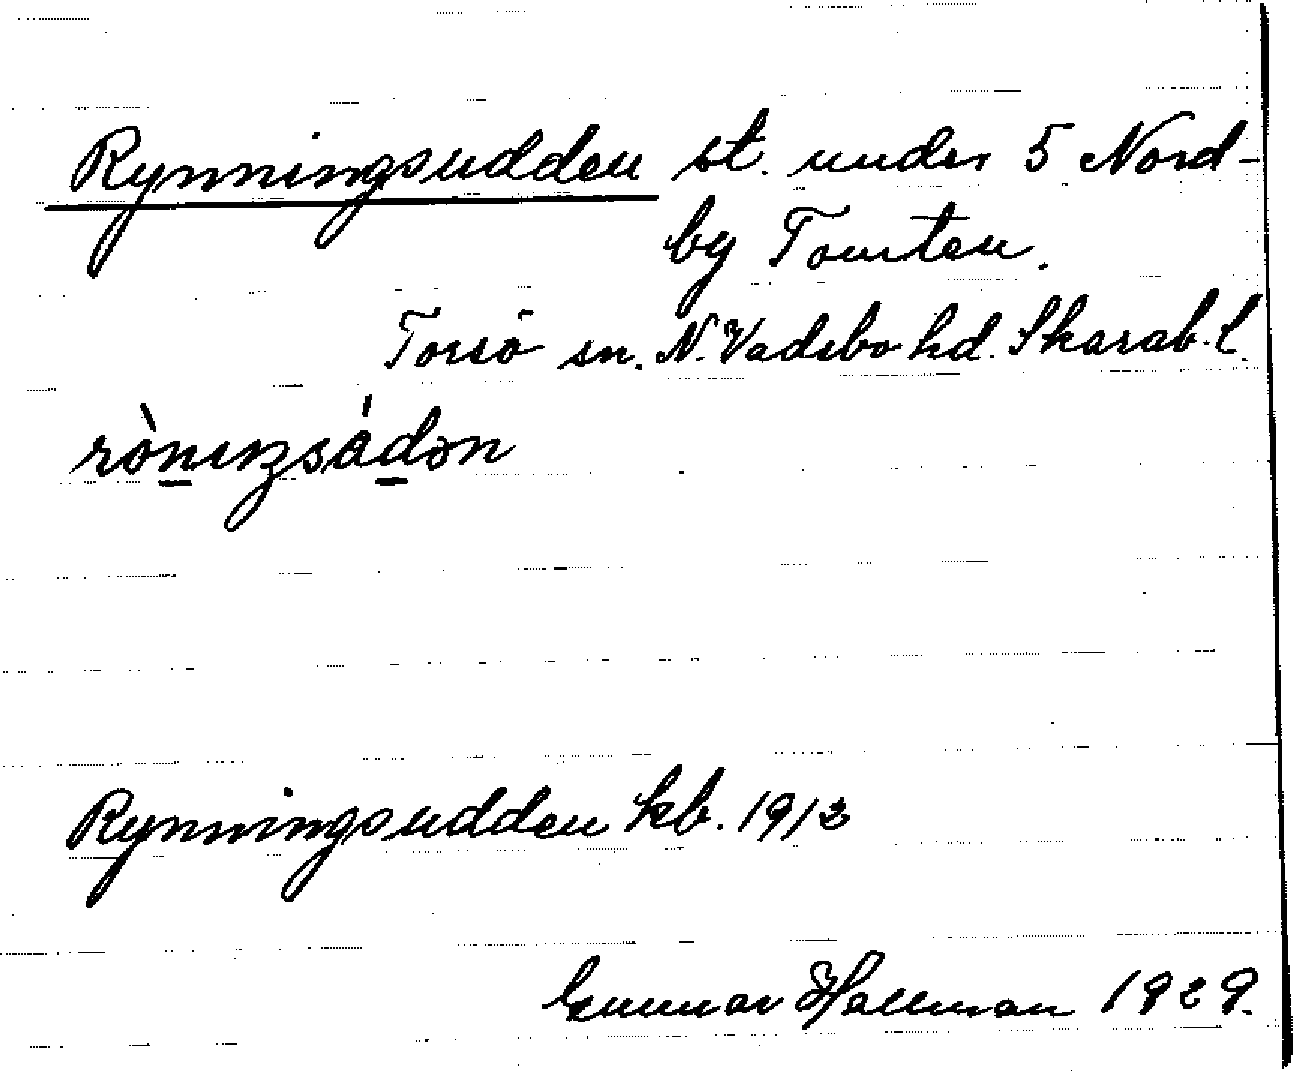 Rynningsudden st. under 5 Nord-
by Tomten.
Torsö sn. N. Vadsbo hd. Skarab. l.
rònıŋsádən
Rynningsudden kb. 1913
Gunnar Hallman 1929.